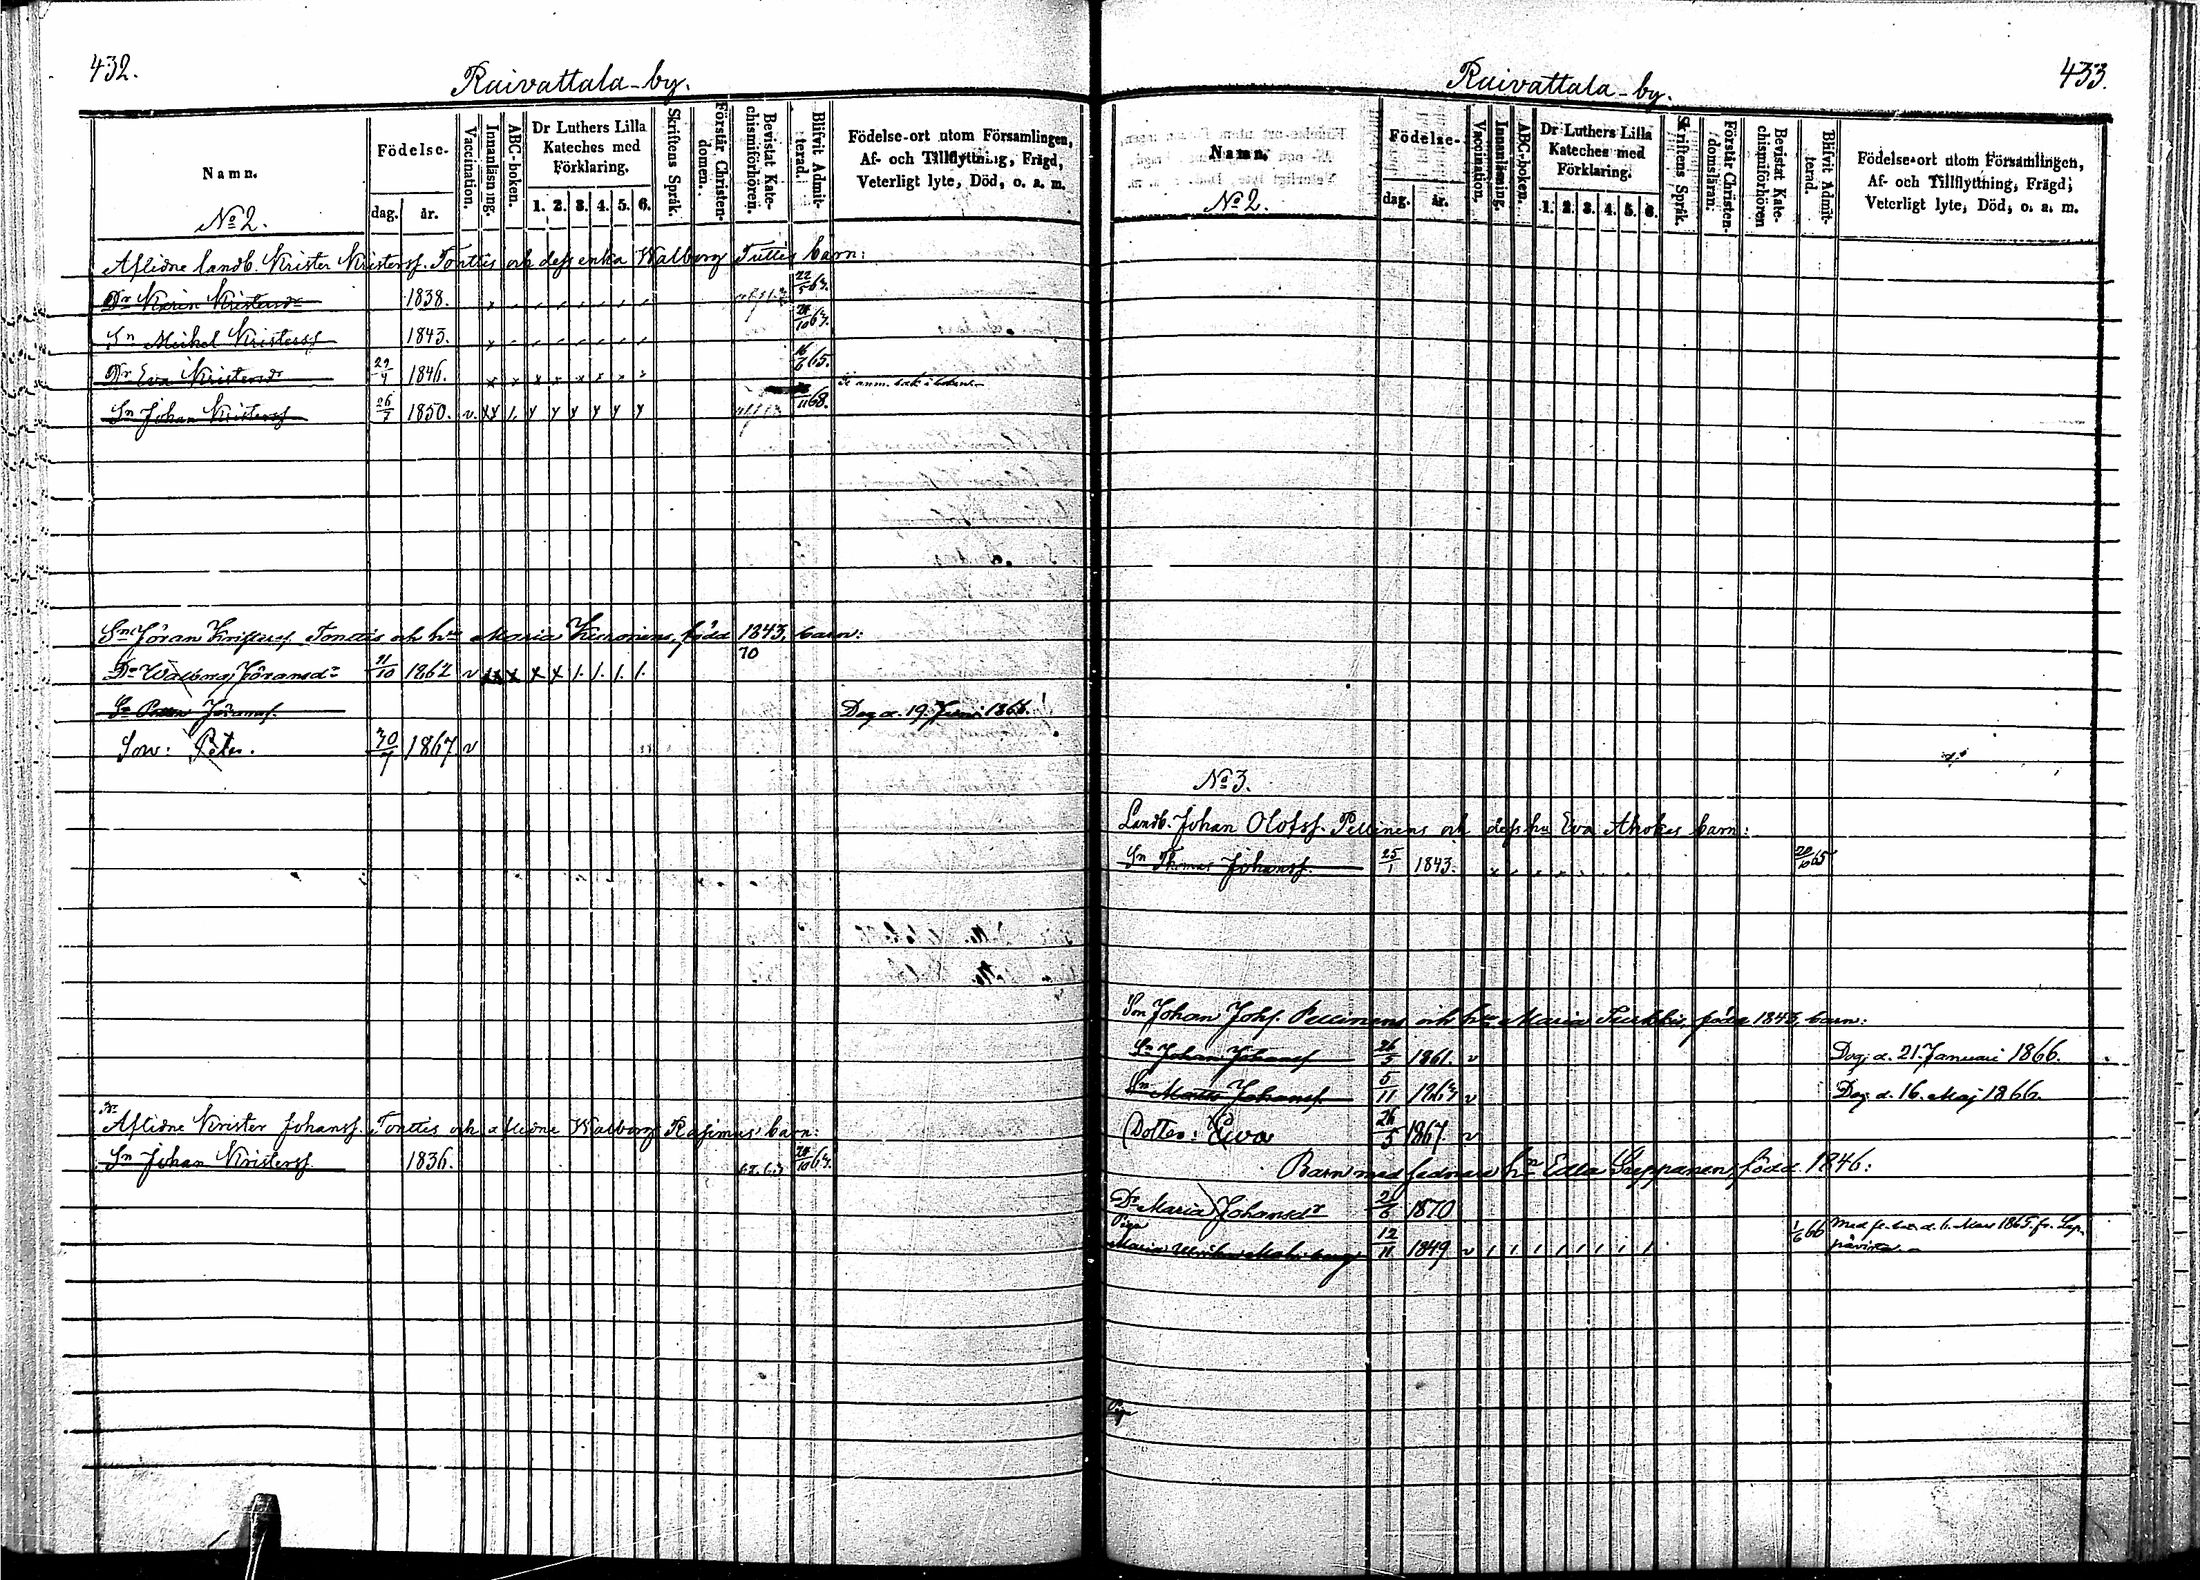 432.
Raivattala-by.
Namn.
Födelse-
dag. år.
Vaccination.
Innanläsning.
ABC-boken.
Dr Luthers Lilla Kateches med Förklaring.
1. 2. 3. 4. 5. 6.
Skriftens Språk.
Förstår Christendomen.
Bevistat Katechismiförhören.
Blifvit Admitterad.
Födelse-ort utom Församlingen,
Af- och Tillflyttning, Frägd,
Veterligt lyte, Död, o. a. m.
No 2.
Aflidne landb. Krister Kristerss. Tonttis och dess enka Walborg Tuttes barn:
Dr Karin Kristersdr 1838. 22/5 67.
Sn Mickel Kristerss. 1843. /10 67.
Dr Eva Kristersdr 29/4 1846. 16/6 65.
Sn Johan Kristerss. 26/7 1850. v. /11 68.
Sn Jöran Kristerss. Tonttis och hu Maria, född 1843, barn:
70
Dr Walborg Jöransdr 21/10 1862 v
Sn Jöranss. Dog d. 19. Juni 1866.
Son: Peter. 30/7 1867 v
Aflidne Krister Johanss. Tonttis och aflidne Walborg Rasimus barn:
Sn Johan Kristerss. 1836. /10 67.
433.
Raivattala-by.
Namn.
Födelse-
dag. år.
Vaccination.
Innanläsning.
ABC-boken.
Dr Luthers Lilla Kateches med Förklaring.
1. 2. 3. 4. 5. 6.
Skriftens Språk.
Förstår Christendomsläran.
Bevistat Katechismiförhören
Blifvit Admitterad.
Födelse-ort utom Församlingen,
Af- och Tillflyttning, Frägd,
Veterligt lyte, Död, o. a. m.
No 2.
No 3.
Landb. Johan Olofss. Pellinens och dess hu Eva Ahokas barn:
Sn Thomas Johanss. 25/1 1843. 20/10 65
Son Johan Johss. Pellinens och hu Maria Turkkis, född 1843, barn:
Sn Johan Johanss 26/5 1861. v Dog d. 21. Januari 1866.
Sn Matts Johanss. 5/11 1863 v Dog d. 16. Maj 1866.
Dotter: Eva 26/5 1867. v
Barn med sednare hu Edla Seppänen, född 1846:
Dr Maria Johansdr 2/6 1870
Piga
Maria 12/11 1849 v 1/6 66 Med fl. bet. d. 6. Mars 1865 fr.
Pig